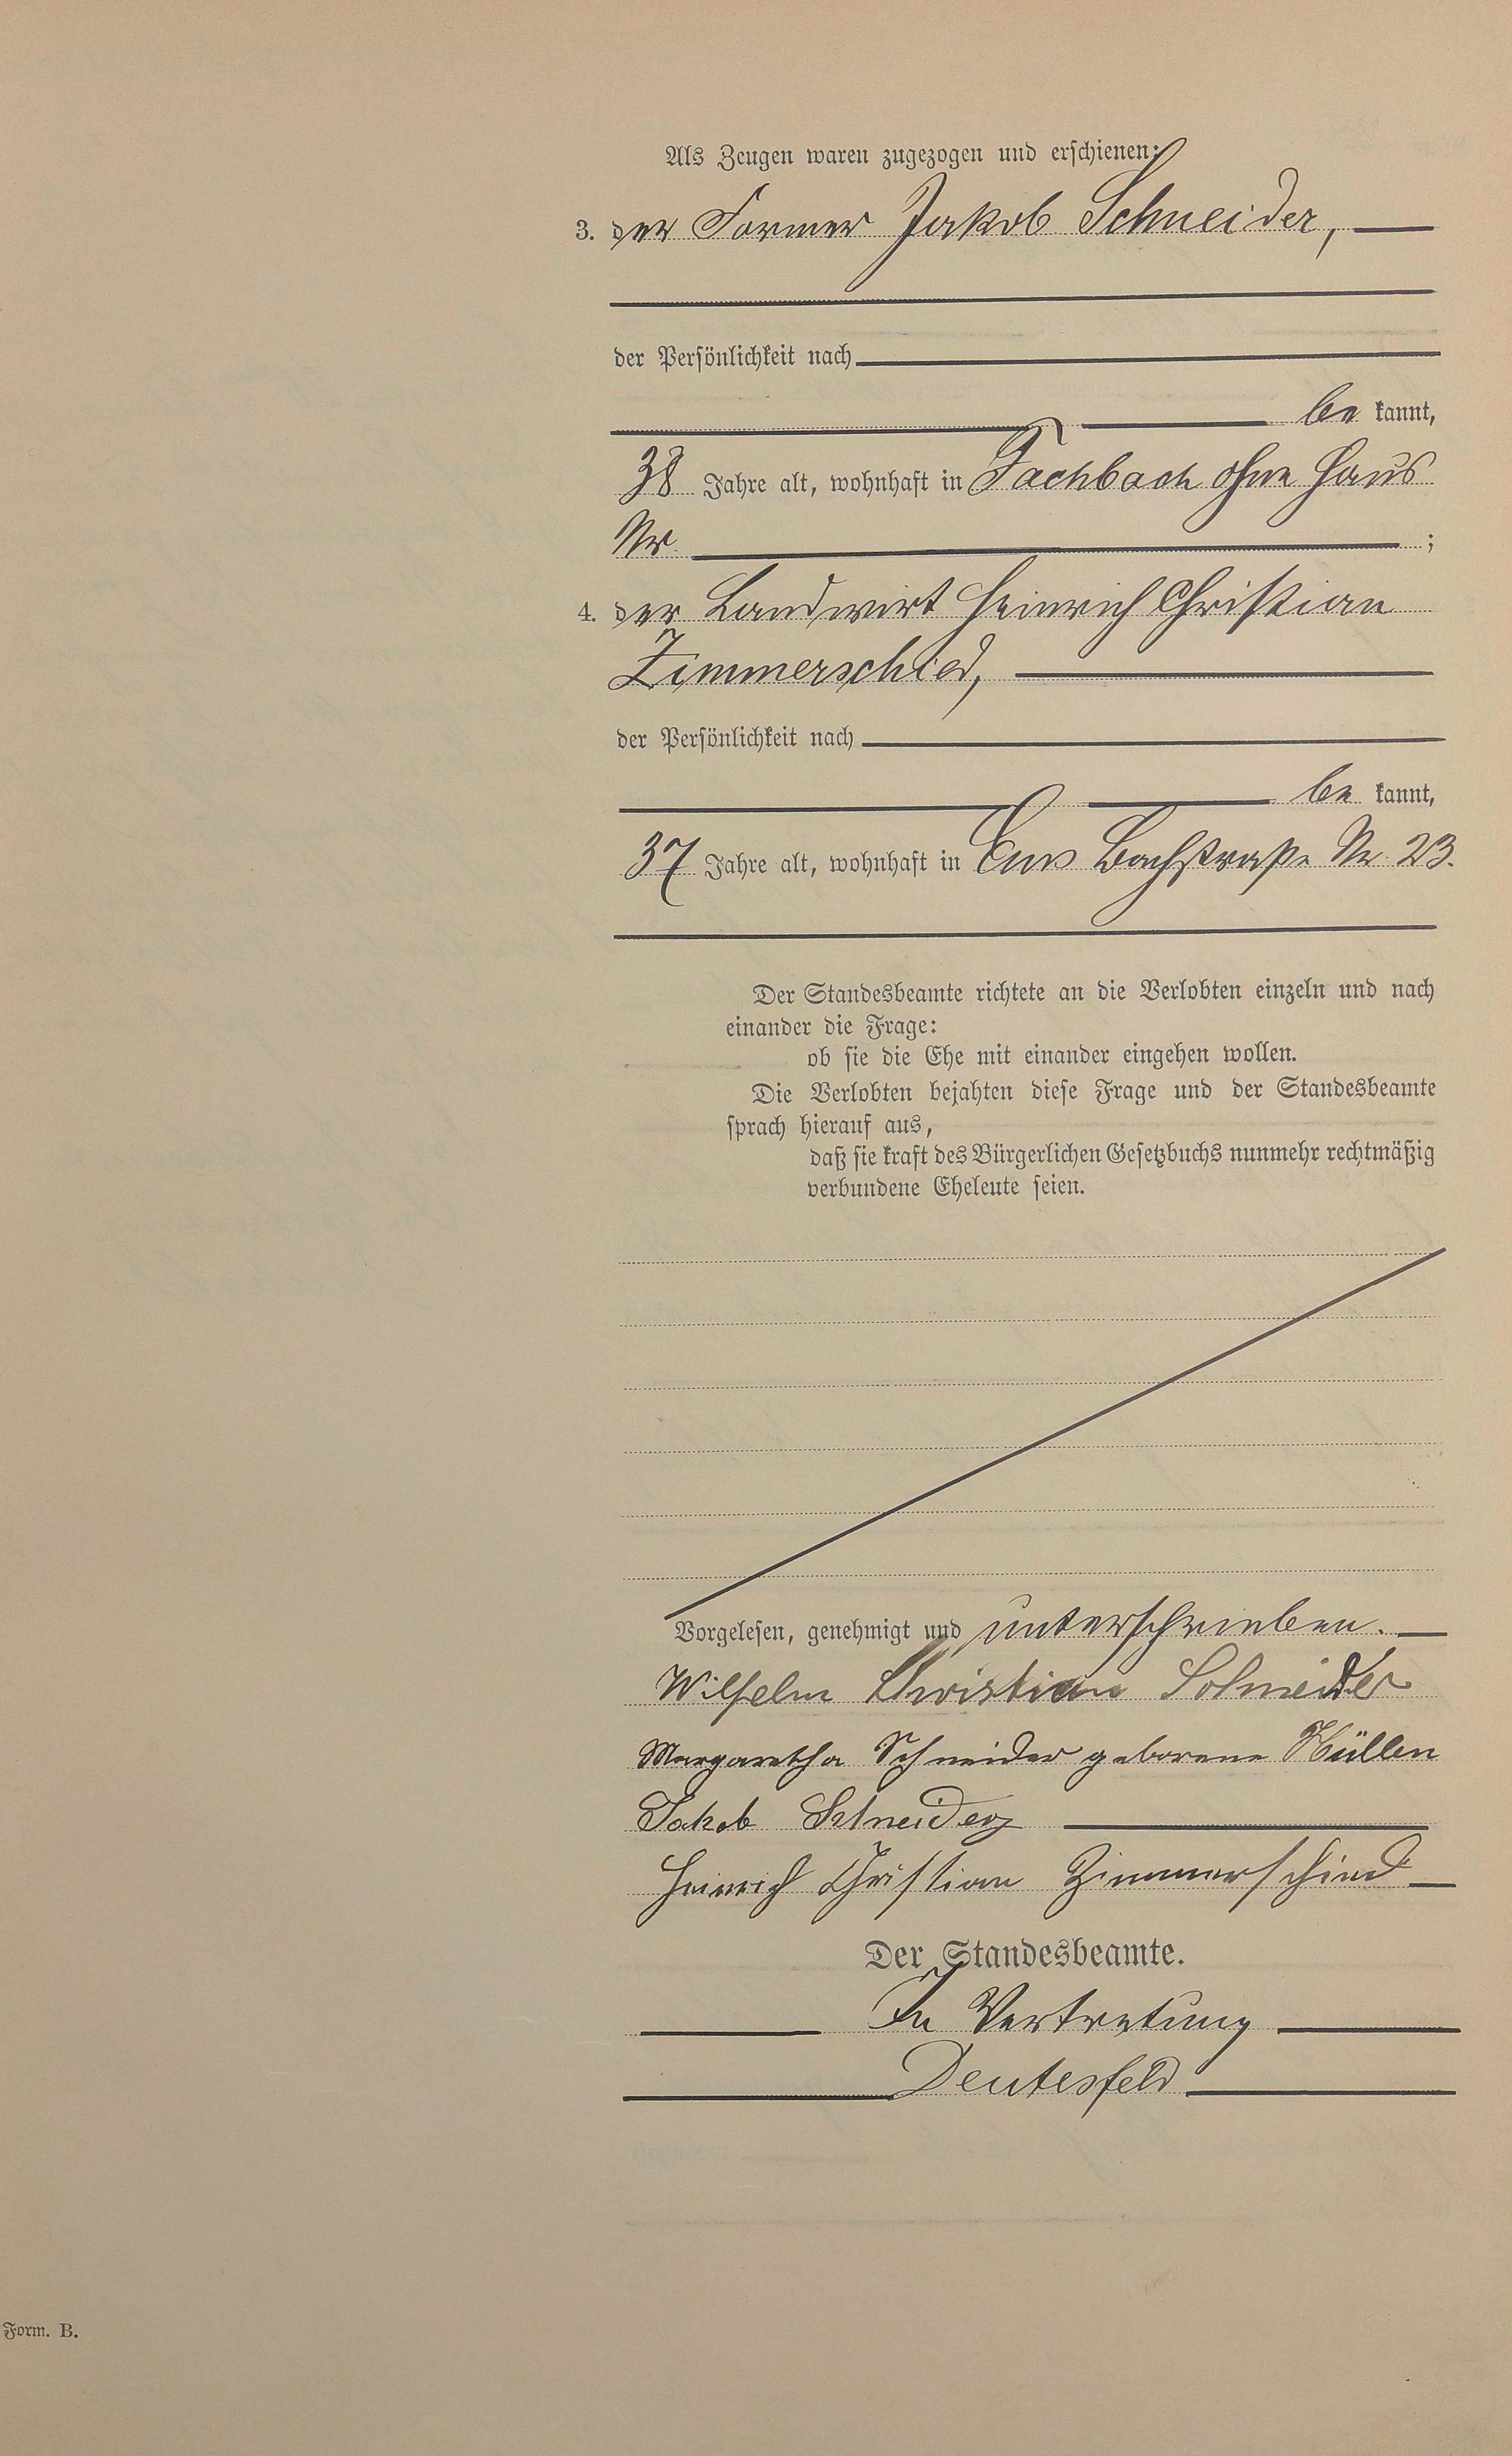 Als Zeugen waren zugezogen und erschienen:
3. der Former Jakob Schneider,
der Persönlichkeit nach
be kannt,
38 Jahre alt, wohnhaft in Fachbach ohne Haus
Nr. ;
4. der Landwirt Heinrich Christian
Zimmerschied,
der Persönlichkeit nach
be kannt,
37 Jahre alt, wohnhaft in Ems Bachstraße Nr 23.
Der Standesbeamte richtete an die Verlobten einzeln und nach
einander die Frage:
ob sie die Ehe mit einander eingehen wollen.
Die Verlobten bejahten diese Frage und der Standesbeamte
sprach hierauf aus,
daß sie kraft des Bürgerlichen Gesetzbuchs nunmehr rechtmäßig
verbundene Eheleute seien.
Vorgelesen, genehmigt und unterschrieben.
Wilhelm Christian Schneider
Margaretha Schneider geborene Hüllen
Jakob Schneider
Heinrich Christian Zimmerschied
Der Standesbeamte.
In Vertretung
Deutesfeld
Form. B.